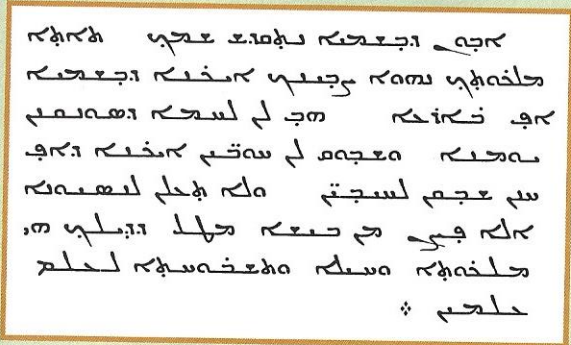 ܐܒܘܢ ܕܒܫܡܝܐ ܢܬܩܕܫ ܫܡܟ ܬܐܬܐ
ܡܠܟܘܬܟ ܢܗܘܐ ܨܒܝܢܟ ܐܝܟܢܐ ܕܒܫܡܝܐ
ܐܦ ܒܐܪܥܐ ܗܒ ܠܢ ܠܚܡܐ ܕܣܘܢܩܢܢ
ܝܘܡܢܐ ܘܫܒܘܩ ܠܢ ܚܘܒ̈ܝܢ ܐܝܟܢܐ ܕܐܦ
ܚܢܢ ܫܒܩܢ ܠܚܝܒ̈ܝܢ ܘܠܐ ܬܥܠܢ ܠܢܣܝܘܢܐ
ܐܠܐ ܦܨܢ ܡܢ ܒܝܫܐ ܡܛܠ ܕܕܝܠܟ ܗܝ
ܡܠܟܘܬܐ ܘܚܝܠܐ ܘܬܫܒܘܚܬܐ ܠܥܠܡ
ܥܠܡܝܢ ܀